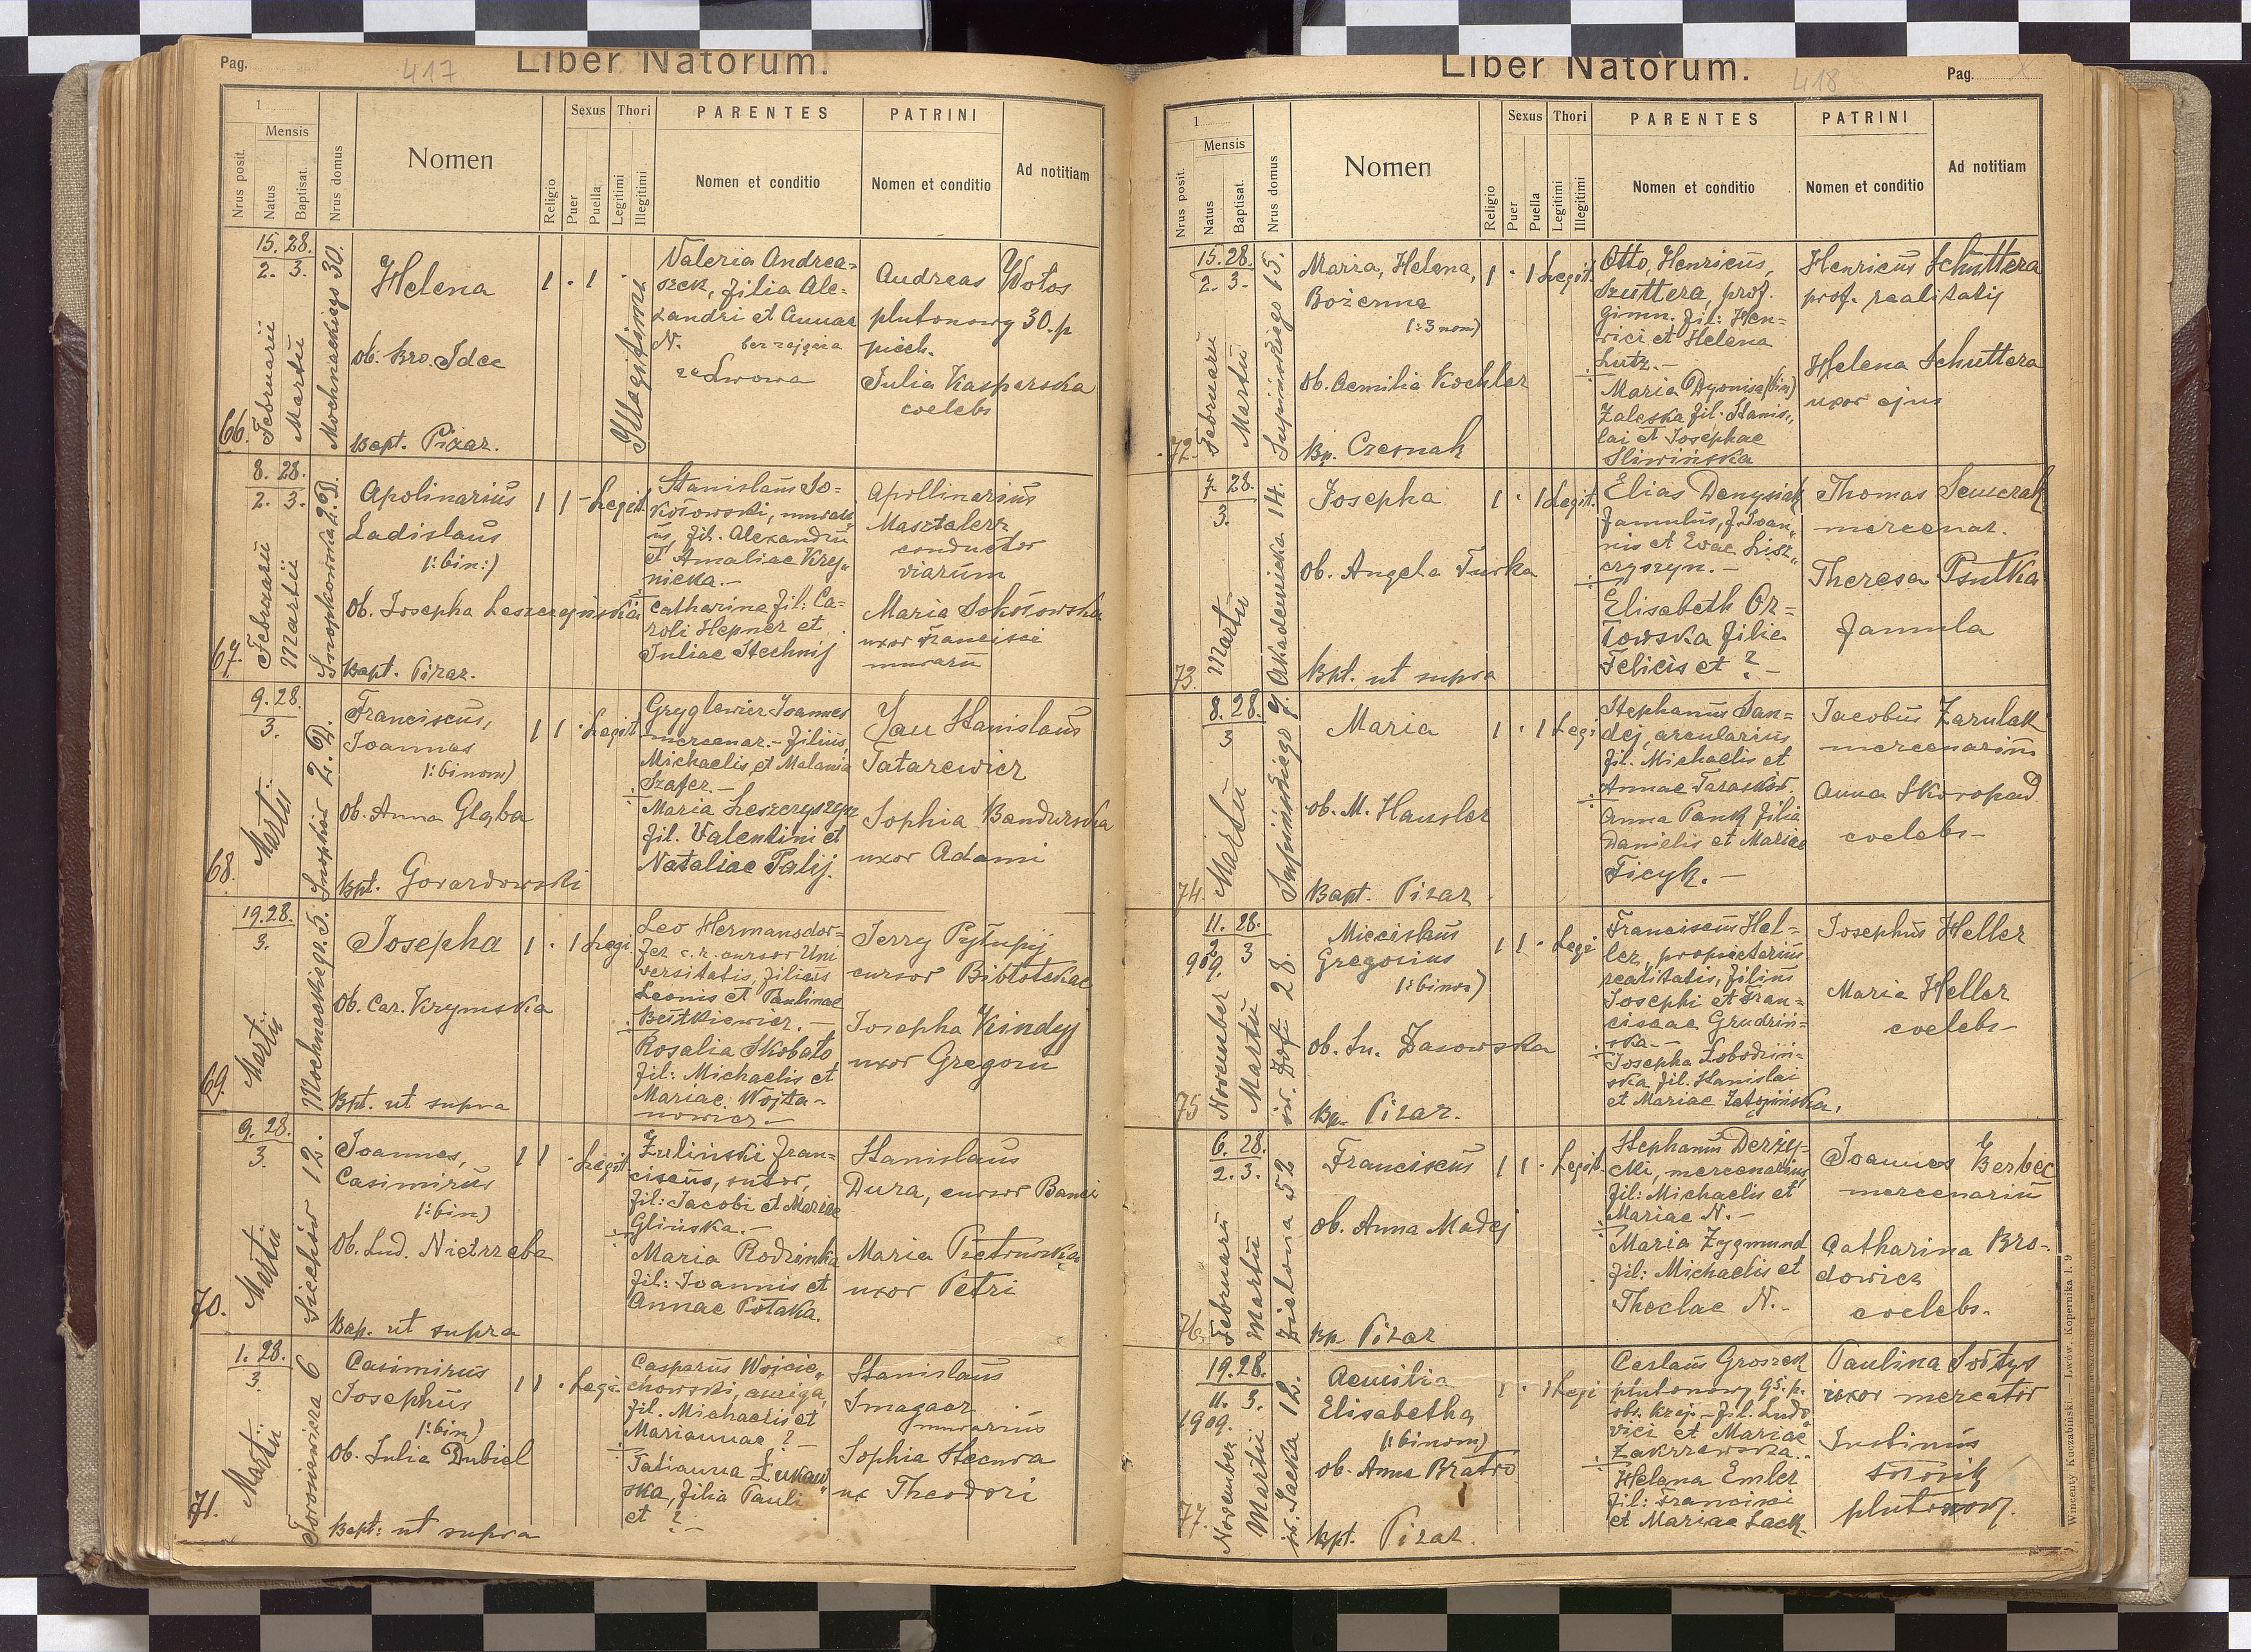 Pag.
417
Liber Natorum.
1
Mensis
Nrus posit.
Natus
Baptisat.
Nrus domus
Nomen
Religio
Sexus
Puer
Puella
Thori
Legitimi
Illegitimi
PARENTES
Nomen et conditio
PATRINI
Nomen et conditio
Ad notitiam
66.
15. 28.
2. 3.
Februarii
Martii
Mochnackiego 30.
Helena
ob. Bro. Idec
Bapt. Pizar.
1 · 1 ·
Illegitimi
Valeria Andrea=
szek, filia Ale=
xandri et Annae
N. bez zajęcia
ze Lwowa
Andreas Wotos
plutonowy 30. p
piech.
Julia Kasparska
coelebs
67.
8. 28.
2. 3.
Februarii
Martii
Snopkowska
Apolinarius
Ladislaus
1:bin:)
Ob. Josepha Leszczyńska
Bapt. Pizar.
1 1 - Legit.
Stanislaus So=
kołowski, murari
us, fil. Alexandri
et Amaliae Kry„
nicka.-
Catharina fil: Ca=
roli Hepner et
Juliae Stechnij
Apollinarius
Masztalerz
conductor
viarum
Maria Sokołowska
uxor Francisci
murarii
68.
9. 28.
3.
Martii
Snopków
Franciscus,
Joannes
1:binom)
Ob. Anna Głąba
Bpt. Govardowski
1 1 · Legit
Gryglewicz Joannes
mercenar.- filius
Michaelis et Melania
Szafer.-
Maria Leszczyszyn
fil. Valentini et
Nataliae Palij.
Jan Stanislaus
Tatarewicz
Sophia Bandurska
uxor Adami
69.
19. 28.
3.
Martii
Mochnackiego 5.
Josepha
Ob. Car. Krymska
Bpt. ut supra
1 · 1 Legi
Leo Hermansdor=
fer c. r. cursor Uni
versitatis, filius
Leonis et Paulinae
Rosalia Skobało
fil: Michaelis et
Mariae Wojta=
nowicz -
Jerzy Pyłypij
cursor Bibliotekae
Josepha Kindyj
uxor Gregorii
70.
9. 28.
3.
Martii
12.
Joannes,
Casimirus
1:bin)
Ob. Lud. Nietrzeba
Bap. ut supra
1 1 · Legit.
Zulinski Fran=
ciscus, sutor,
fil: Jacobi et Mariae
Glińska.-
Maria Rodzinka
fil: Joannis et
Annae Potaka.
Stanislaus
Dura, cursor Banci
Maria Pietruska
uxor Petri
71.
1. 28.
3.
Martii
Torosiewicza 6
Casimirus
Josephus
1:bin)
Ob. Julia Dubiel
Bapt: ut supra
1 1 · Legi
Casparus Wojcie„
chowski, auriga,
fil. Michaelis et
Mariannae ? -
Tatianna Łukaw„
ska, filia Pauli
et ? -
Stanislaus
Smagacz
murarius
Sophia Stecura
ux Theodori
Liber Natorum.
418
Pag.
1
Mensis
Nrus posit.
Natus
Baptisat.
Nrus domus
Nomen
Religio
Sexus
Puer
Puella
Thori
Legitimi
Illegitimi
PARENTES
Nomen et conditio
PATRINI
Nomen et conditio
Ad notitiam
72.
15. 28.
2. 3.
Februarii
Martii
Supinskiego 15.
Maria, Helena,
Bożenna
1:3 nom)
Ob. Aemilia Koehler
Bp. Czesnak
1 · 1 Legit.
Otto, Henricus,
Szuttera, prof.
gimn. fil: Hen=
rici et Helena
Lutz.-
Maria Dyonisa (bin)
Zaleska fil. Stanis„
lai et Josephae
Sliwińska
Henricus Schuttera
prof. realitatis
Helena Schuttera
uxor ejus
73.
7. 28.
3.
Martii
Akademicka 14.
Josepha
Ob. Angela Turka
Bpt. ut supra
1 · 1 Legit.
Elias Denysiak
famulus, f. Joan„
nis et Evae Lisz„
czyszyn.-
Elisabeth Or=
łowska filia
Felicis et ? -
Thomas Semczak
mercenar.
Theresa Psutka
famula
74.
8. 28.
3
Martii
Supinskiego 7.
Maria
Ob. M. Hausler
Bapt. Pizar
1 · 1 Legi
Stephanus San=
dej, arcularius
fil. Michaelis et
Annae Taraskow.
Anna Pank filia
Danielis et Mariae
Ficyk.-
Jacobus Zarulak
mercenarius
Anna Skoropad
coelebs-
75
11. 28.
2 3
909.
November
Martii
św. Zofii 28.
Miecislaus
Gregorius
1:binos)
Ob. Sn. Zasowska
Bp. Pizar.
1 1 · Legi
Franciscus Hel=
ler, proprietarius
realitatis, filius
Josephi et Fran=
ciscae Grudzin=
ska-
Josepha Łobodziń=
ska fil. Stanislai
et Mariae
Josephus Heller
Maria Heller
coelebs-
76.
6. 28.
2. 3.
Februarii
Martii
Zielona 52
Franciscus
Ob. Anna Madej
Bp Pizar
1 1 · Legit.
Stephanus Derży-
cki, mercenarius,
fil: Michaelis et
Mariae N.-
Maria Zygmund
fil: Michaelis et
Theclae N.-
Joannes Berbec
mercenarius
Catharina Bro-
dowicz
coelebs-
77.
19. 28.
11. 3.
1909.
November
Martii
św. Jacka 12.
Aemilia
Elisabetha
(1:binom)
Ob. Anna Bratro
Bpt. Pizar.
1 · 1 Legi
Ceslaus Groszek
plutonowy 95. p.
obr. kraj.- fil. Ludo
vici et Mariae
Zakrzewska„
Helena Emler
fil: Francisci
et Mariae Lack-
Paulina Sołtys
uxor mercator
Justinus
plutonowy.
Wincenty Kuczabiński. — Lwów, Kopernika l. 9